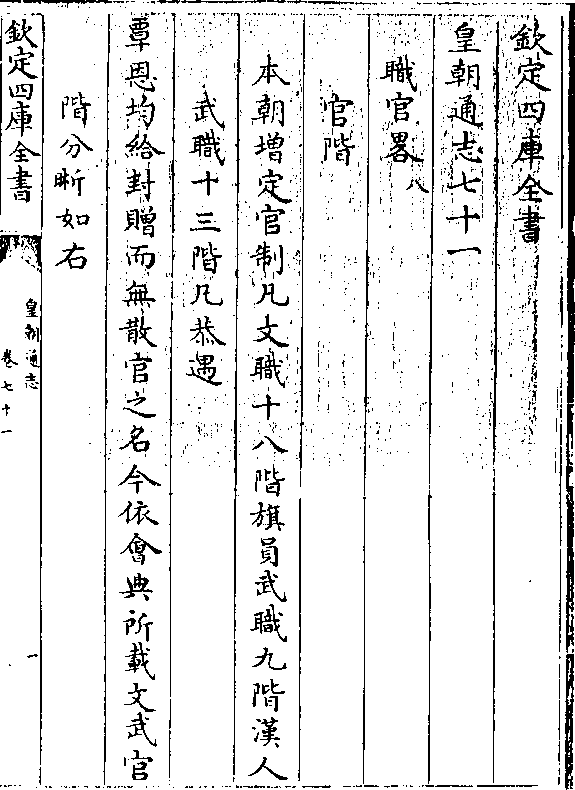 欽定四庫全書
皇朝通志七十一
職官畧八
官階
本朝增定官制凡文職十八階旗員武職九階漢人
武職十三階凡恭遇
覃恩均給封贈而無散官之名今依會典所載文武官
階分晰如右
欽定四庫全書
皇朝通志
卷七十一
一